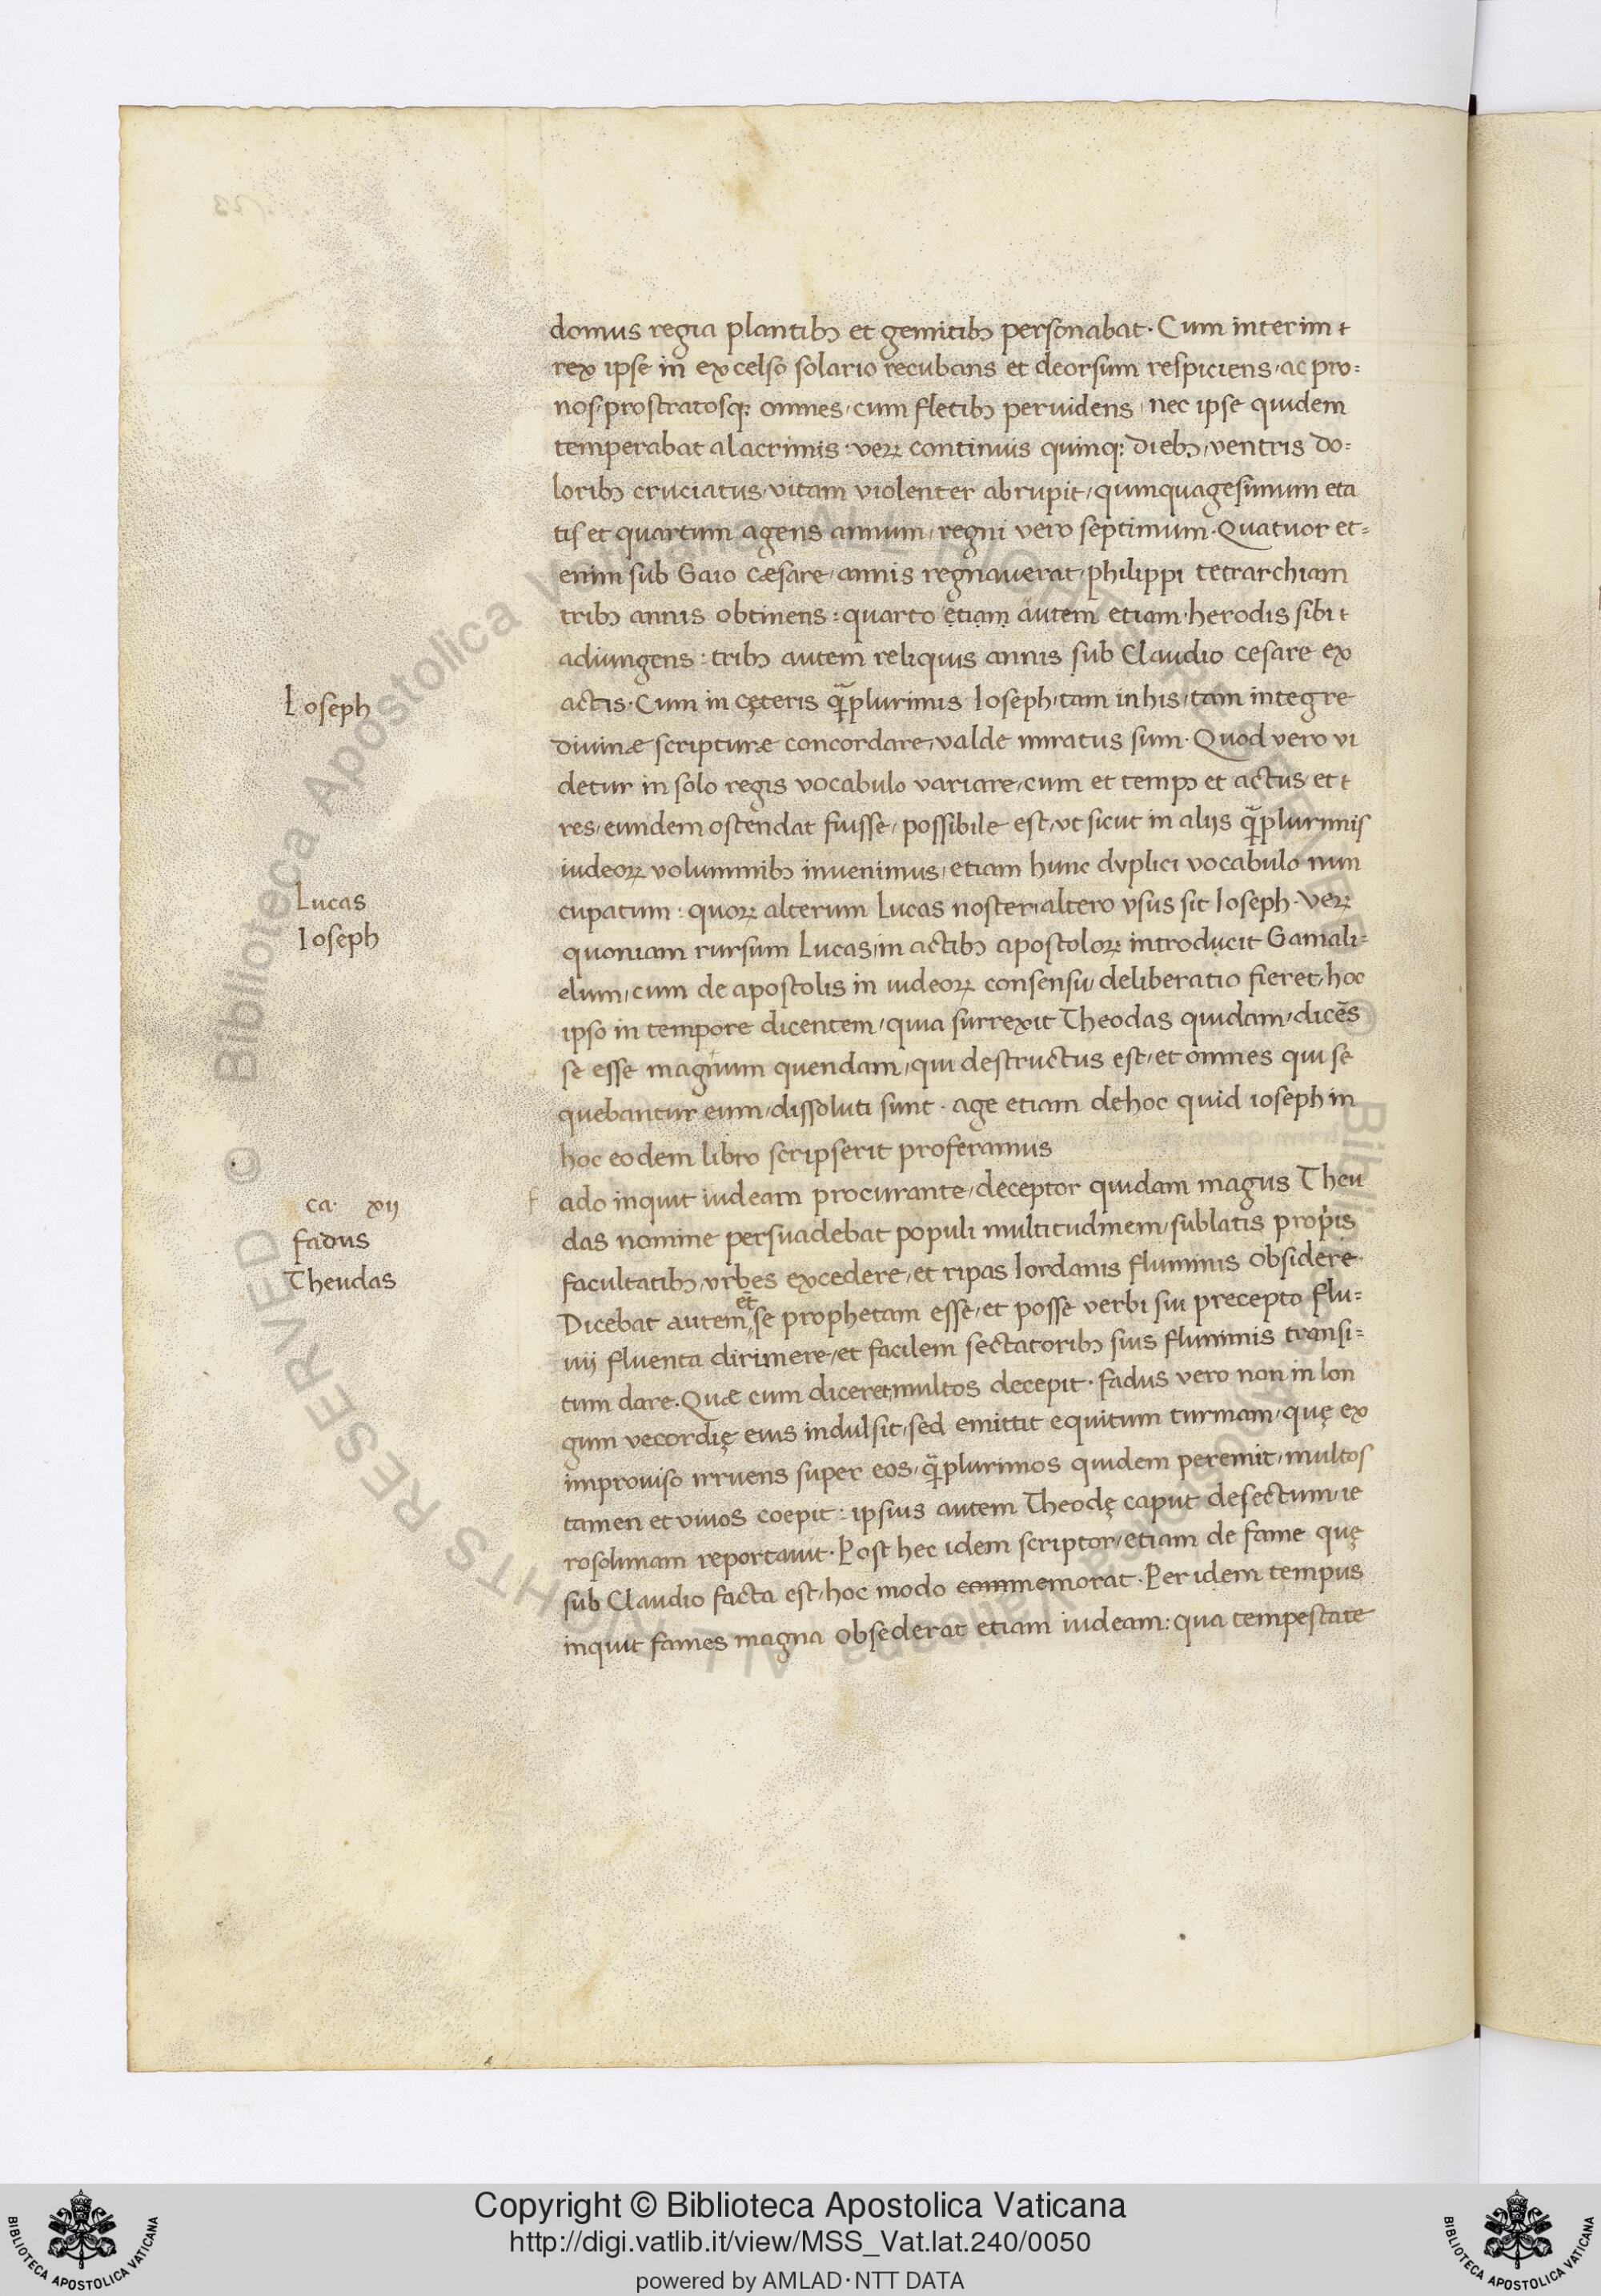 domus regia plantibꝫ et gemitibꝫ personabat. Cum interim t
rex ipse in excelso solario recubans et deorsum respiciens, ac pro=
nos, prostratosqꝫ omnes, cum fletibꝫ peruidens, nec ipse quidem
temperabat a lacrimis. veꝝ continuis quinqꝫ diebꝫ, ventris do=
loribꝫ cruciatus, vitam violenter abrupit, quinquagesimum eta
tis et quartum agens annum, regni vero septimum. Quatuor et=
enim sub Gaio cæsare, annis regnauerat, philippi tetrarchiam
tribꝫ annis obtinens: quarto etiam autem etiam, herodis sibi t
adiungens: tribꝫ autem reliquis annis sub Claudio cesare ex
actis. Cum in cęteris qͣ̃plurimis Ioseph, tam in his, tam integre
diuinæ scripturæ concordare, valde miratus sum. Quod vero vi
detur in solo regis vocabulo variare, cum et tempꝫ et actus, et t
res, eundem ostendat fuisse, possibile est, vt sicut in alijs qͣ̃plurimis
iudeoꝝ voluminibꝫ inuenimus, etiam hunc dvplici vocabulo nun
cupatum: quoꝝ alterum Lucas noster, altero vsus sit Ioseph. Veꝝ
quoniam rursum Lucas, in actibꝫ apostoloꝝ introducit Gamali=
elum, cum de apostolis in iudeoꝝ consensu, deliberatio fieret, hoc
ipso in tempore dicentem, quia surrexit Theodas quidam, dicẽs
se esse magnum quendam, qui destructus est, et omnes qui se
quebantur eum, dissoluti sunt. age etiam dehoc quid ioseph in
hoc eodem libro scripserit proferamus
f ado inquit iudeam procurante, deceptor quidam magus Theu
das nomine persuadebat populi multitudinem, sublatis propis
facultatibꝫ, vrbes excedere, et ripas Iordanis fluminis obsidere.
et̃
Dicebat autem se prophetam esse, et posse verbi sui precepto flu=
uij fluenta dirimere, et facilem sectatoribꝫ suis fluminis transi=
tum dare. Quæ cum diceret, multos decepit. fadus vero non in lon
gum vecordię eius indulsit, sed emittit equitum turmam, quę ex
improuiso irruens super eos, qͣ̃plurimos quidem peremit, multos
tamen et viuos coepit: ipsius autem Theodę caput desectum, ie
rosolimam reportauit. Post hec idem scriptor, etiam de fame quę
sub Claudio facta est, hoc modo commemorat. Per idem tempus
inquit fames magna obsederat etiam iudeam: qua tempestate
Ioseph
Lucas
Ioseph
ca. xij
fadus
Theudas
© Biblioteca Apostolica Vaticana ALL RIGHTS RESERVED
© Biblioteca Apostolica Vaticana ALL RIGHTS RESERVED
Copyright © Biblioteca Apostolica Vaticana
http://digi.vatlib.it/view/MSS_Vat.lat.240/0050
powered by AMLAD·NTT DATA
BIBLIOTECA APOSTOLICA VATICANA
BIBLIOTECA APOSTOLICA VATICANA